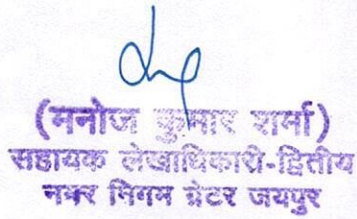 (मनोज कुमार शर्मा)
सहायक लेखाधिकारी-द्वितीय
नगर निगम ग्रेटर जयपुर